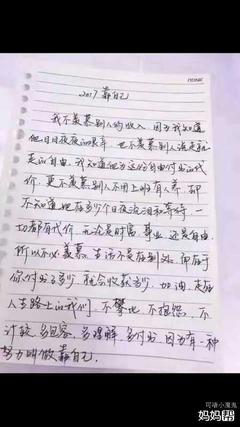 2017 靠自己
我不羡慕别人的收入，因为我知道
他日日夜夜的艰辛，也不羡慕别人说走就
走的自由，我知道他为这份自由付出的代
价，更不羡慕别人不用上班有人养，却
不知道她在多少个日夜流泪和等待，一
切都有代价，无论是财富、事业，还是自由。
所以不必羡慕，生活不是在别处，而在于
你付出了多少，就会收获多少，加油，走在
人生路上的我们，不攀比，不抱怨，不
计较，多包容，多理解，多付出，因为有一种
努力叫做靠自己。
可嘻小魔鬼
妈妈帮